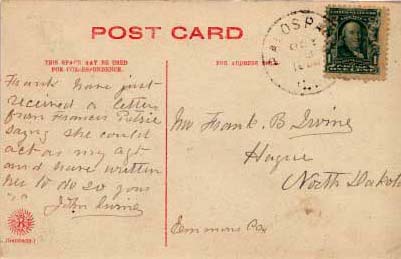 POST CARD
THIS SPACE MAY BE USED
FOR CORRESPONDENCE.
FOR ADDRESS
Frank have just
received a letter
from Francis
saying she could
act as my agt
and have written
her to do so yours
John Irvine
Mr Frank. B Irvine
Hague
North Dakota
Emmons Co